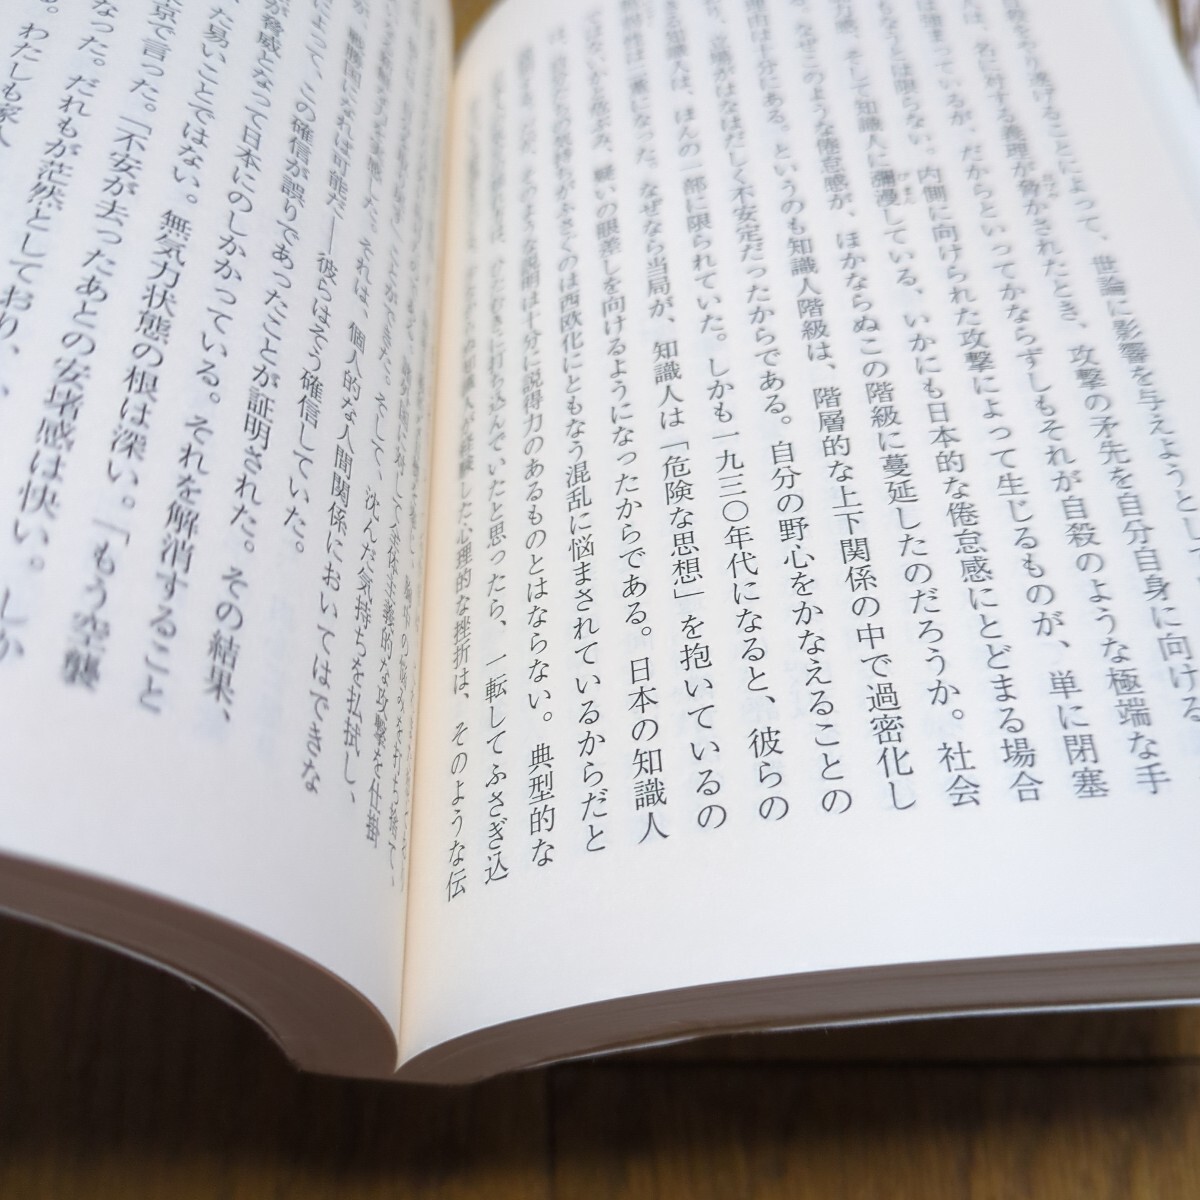 をやり遂げることによって、世論に影響を与えようとして
は、名に対する義理が脅かされたとき、攻撃の矛先を自分自身に向ける
は強まっているが、だからといってかならずしもそれが自殺のような極端な手
るとは限らない。内側に向けられた攻撃によって生じるものが、単に閉塞
感、そして知識人に彌漫している、いかにも日本的な倦怠感にとどまる場合
なぜこのような倦怠感が、ほかならぬこの階級に蔓延したのだろうか。社会
理由は十分にある。というのも知識人階級は、階層的な上下関係の中で過密化し
立場がはなはだしく不安定だったからである。自分の野心をかなえることの
る知識人は、ほんの一部に限られていた。しかも一九三〇年代になると、彼らの
脆弱性は二重になった。なぜなら当局が、知識人は「危険な思想」を抱いているの
ではないかと怪しみ、疑いの眼差しを向けるようになったからである。日本の知識人
は、自分たちの気持ちがふさぐのは西欧化にともなう混乱に悩まされているからだと
だが、そのような説明は十分に説得力のあるものとはならない。典型的な
ひたむきに打ち込んでいたと思ったら、一転してふさぎ込
知識人が経験した心理的な挫折は、そのような伝
諸外国に対して全体主義的な攻撃を仕掛
ことができた。そして、沈んだ気持ちを払拭し、
を実感した。それは、個人的な人間関係においてはできな
戦勝国になれば可能だ――彼らはそう確信していた。
によって、この確信が誤りであったことが証明された。その結果、
が脅威となって日本にのしかかっている。それを解消すること
た易いことではない。無気力状態の根は深い。「もう空襲
京で言った。「不安が去ったあとの安堵感は快い。しか
なった。だれもが茫然としており、
る。わたしも家人